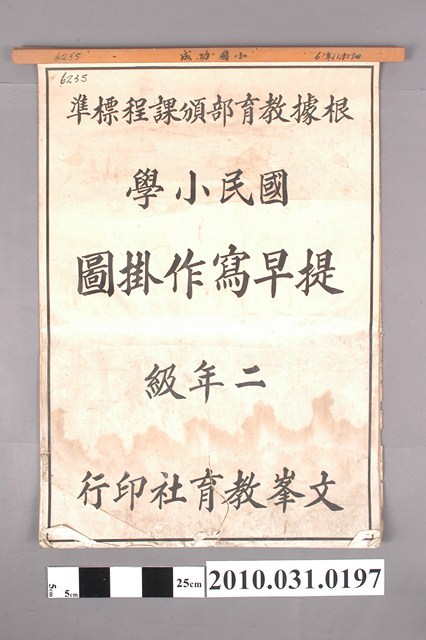 6235 成功國小
6235
根據教育部頒課程標準
國民小學
提早寫作掛圖
二年級
文峯教育社印行
5cm 5cm 25cm 2010.031.0197